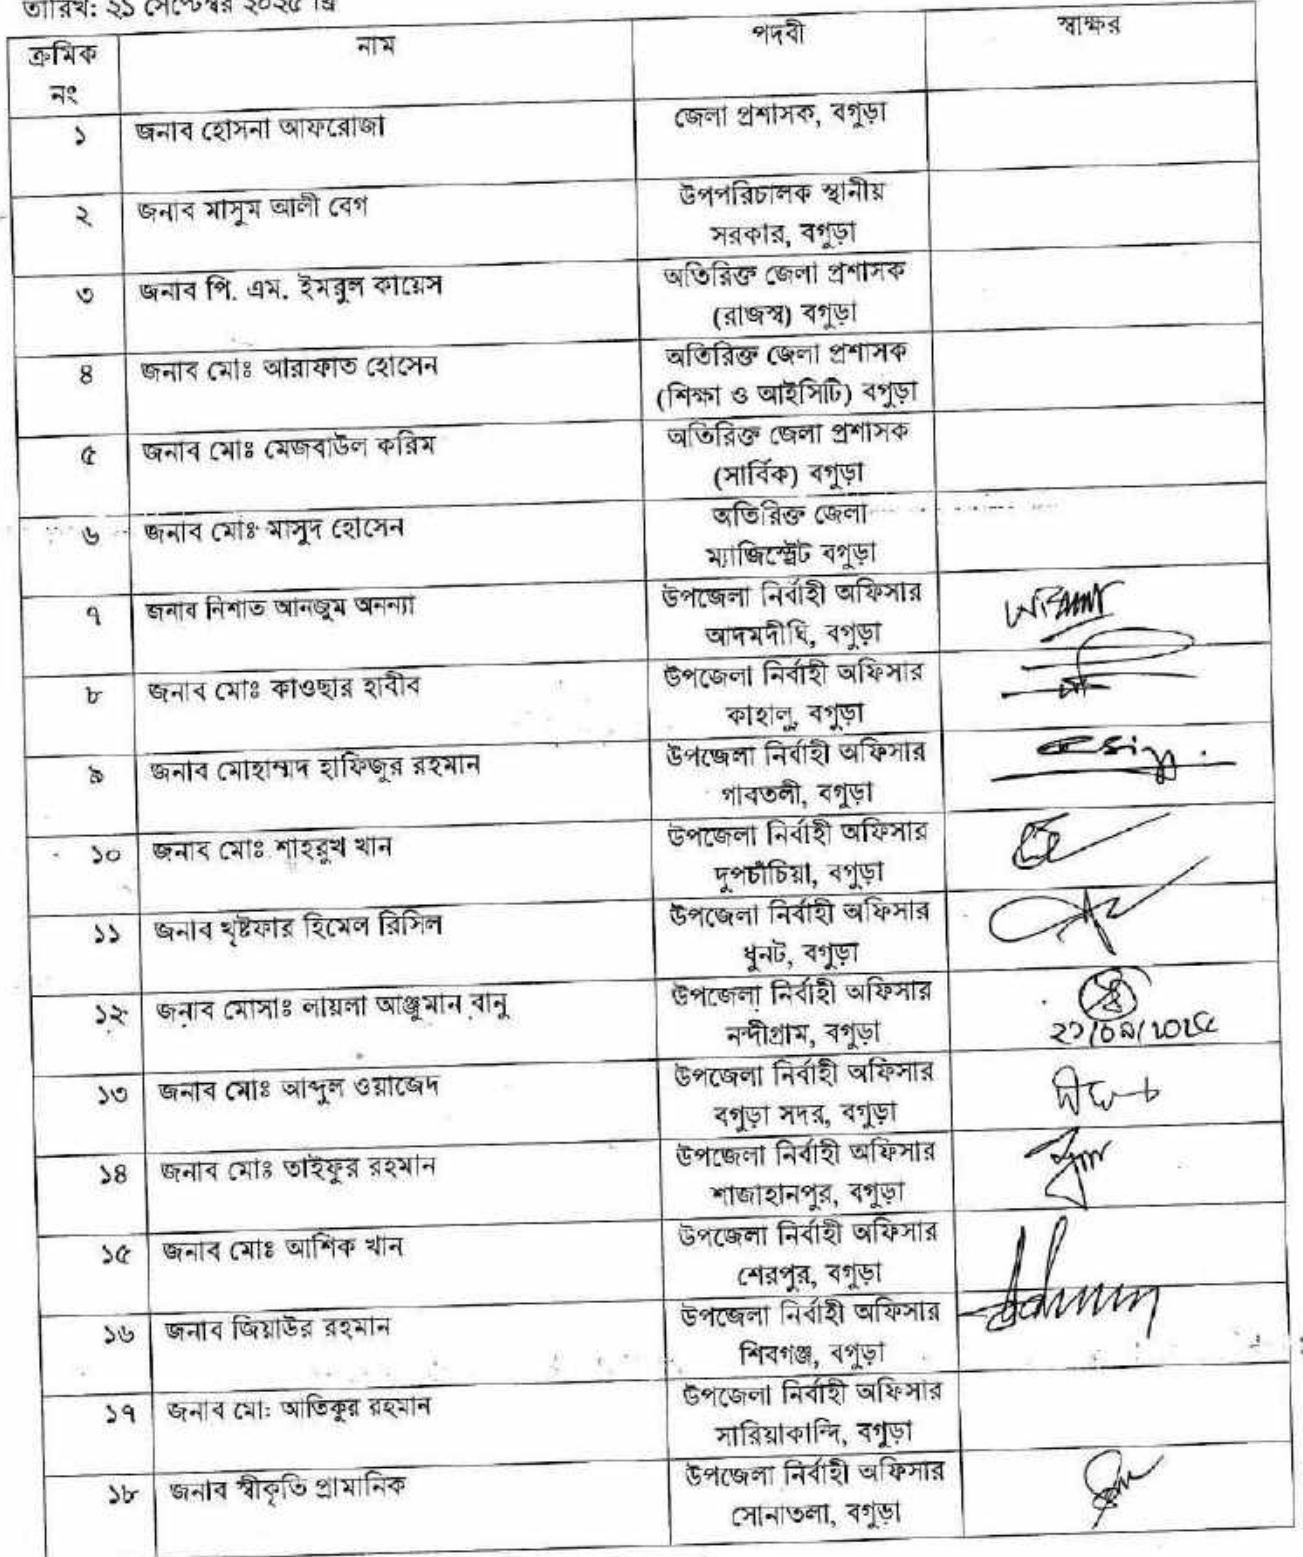 তারিখ: ২১ সেপ্টেম্বর ২০২৫ খ্রি
ক্রমিক নং নাম পদবী স্বাক্ষর
১ জনাব হোসনা আফরোজা জেলা প্রশাসক, বগুড়া
২ জনাব মাসুম আলী বেগ উপপরিচালক স্থানীয়
সরকার, বগুড়া
৩ জনাব পি. এম. ইমরুল কায়েস অতিরিক্ত জেলা প্রশাসক
(রাজস্ব) বগুড়া
৪ জনাব মোঃ আরাফাত হোসেন অতিরিক্ত জেলা প্রশাসক
(শিক্ষা ও আইসিটি) বগুড়া
৫ জনাব মোঃ মেজবাউল করিম অতিরিক্ত জেলা প্রশাসক
(সার্বিক) বগুড়া
৬ জনাব মোঃ মাসুদ হোসেন অতিরিক্ত জেলা
ম্যাজিস্ট্রেট বগুড়া
৭ জনাব নিশাত আনজুম অনন্যা উপজেলা নির্বাহী অফিসার
আদমদীঘি, বগুড়া
৮ জনাব মোঃ কাওছার হাবীব উপজেলা নির্বাহী অফিসার
কাহালু, বগুড়া
৯ জনাব মোহাম্মাদ হাফিজুর রহমান উপজেলা নির্বাহী অফিসার
গাবতলী, বগুড়া
১০ জনাব মোঃ শাহরুখ খান উপজেলা নির্বাহী অফিসার
দুপচাঁচিয়া, বগুড়া
১১ জনাব খৃষ্টফার হিমেল রিসিল উপজেলা নির্বাহী অফিসার
ধুনট, বগুড়া
১২ জনাব মোসাঃ লায়লা আঞ্জুমান বানু উপজেলা নির্বাহী অফিসার
নন্দীগ্রাম, বগুড়া ২১/০৯/২০২৫
১৩ জনাব মোঃ আব্দুল ওয়াজেদ উপজেলা নির্বাহী অফিসার
বগুড়া সদর, বগুড়া
১৪ জনাব মোঃ তাইফুর রহমান উপজেলা নির্বাহী অফিসার
শাজাহানপুর, বগুড়া
১৫ জনাব মোঃ আশিক খান উপজেলা নির্বাহী অফিসার
শেরপুর, বগুড়া
১৬ জনাব জিয়াউর রহমান উপজেলা নির্বাহী অফিসার
শিবগঞ্জ, বগুড়া
১৭ জনাব মো: আতিকুর রহমান উপজেলা নির্বাহী অফিসার
সারিয়াকান্দি, বগুড়া
১৮ জনাব স্বীকৃতি প্রামানিক উপজেলা নির্বাহী অফিসার
সোনাতলা, বগুড়া